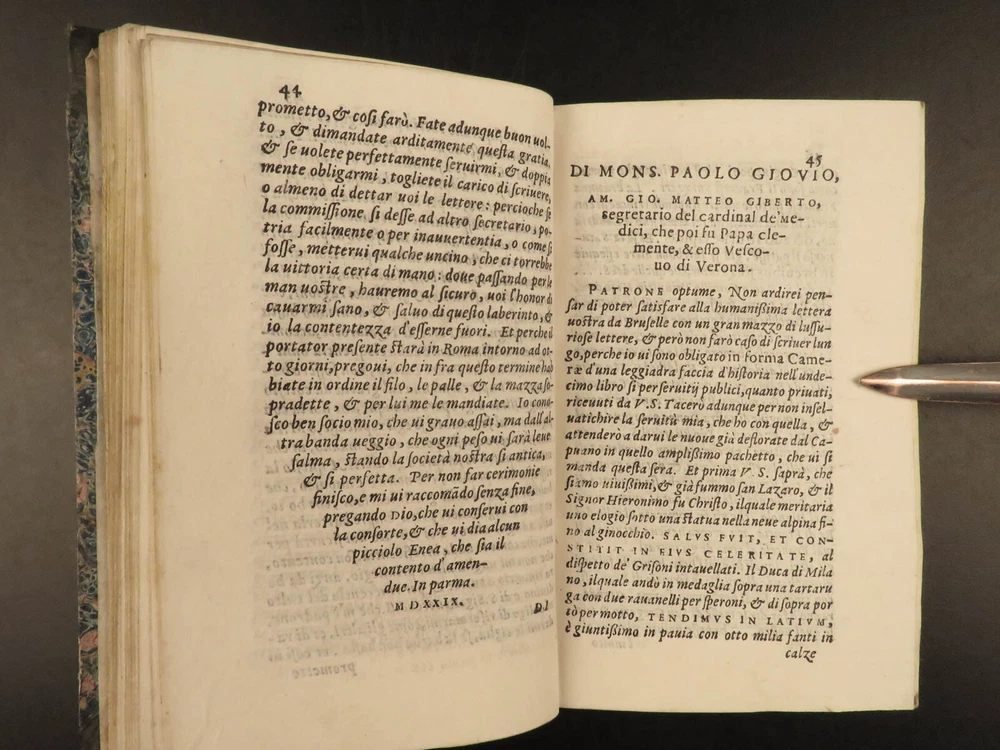 44
prometto, & cosi farò. Fate adunque buon uol-
to, & dimandate arditamente questa gratia,
& se uolete perfettamente seruirmi, & doppia
mente obligarmi, togliete il carico di scriuere,
o almeno di dettar uoi le lettere: percioche se
la commissione si desse ad altro secretario, po-
tria facilmente o per inauuertentia, o come si
fosse, metterui qualche uncino, che ci torrebbe
la uittoria certa di mano: doue passando per le
man uostre, hauremo al sicuro, uoi l'honor di
cauarmi sano, & saluo di questo laberinto, &
io la contentezza d'esserne fuori. Et perche il
portator presente starà in Roma intorno ad ot-
to giorni, pregoui, che in fra questo termine hab
biate in ordine il filo, le palle, & la mazza so-
pradette, & per lui me le mandiate. Io cono-
sco ben socio mio, che ui grauo assai, ma dall'al-
tra banda ueggio, che ogni peso ui sarà leue
salma, stando la società nostra si antica,
& si perfetta. Per non far cerimonie
finisco, e mi ui raccomādo senza fine,
pregando DIO, che ui conserui con
la consorte, & che ui dia alcun
picciolo Enea, che sia il
contento d'amen-
due. In parma.
MDXXIX.
DI
45
DI MONS. PAOLO GIOVIO,
AM. GIO. MATTEO GIBERTO,
segretario del cardinal de'Me-
dici, che poi fu Papa cle-
mente, & esso Vesco-
uo di Verona.
PATRONE optume, Non ardirei pen-
sar di poter satisfare alla humanissima lettera
uostra da Bruselle con un gran mazzo di lussu-
riose lettere, & però non farò caso di scriuer lun
go, perche io ui sono obligato in forma Came-
ræ d'una leggiadra faccia d'historia nell'unde-
cimo libro si per seruitÿ publici, quanto priuati,
riceuuti da V.S. Tacerò adunque per non insel-
uatichire la seruitù mia, che ho con quella, &
attenderò a darui le nuoue già deflorate dal Ca-
puano in quello amplissimo pachetto, che ui si
manda questa sera. Et prima V. S. saprà, che
siamo uiuissimi, & già fummo san Lazaro, & il
Signor Hieronimo fu Christo, ilquale meritaria
uno elogio sotto una statua nella neue alpina fi-
no al ginocchio. SALVS FVIT, ET CON-
STITIT IN EIVS CELERITATE, al
dispetto de' Grisoni intauellati. Il Duca di Mila
no, ilquale andò in medaglia sopra una tartaru
ga con due rauanelli per speroni, & di sopra por
tò per motto, TENDIMVS IN LATIVM,
è giuntissimo in pauia con otto milia fanti in
calze